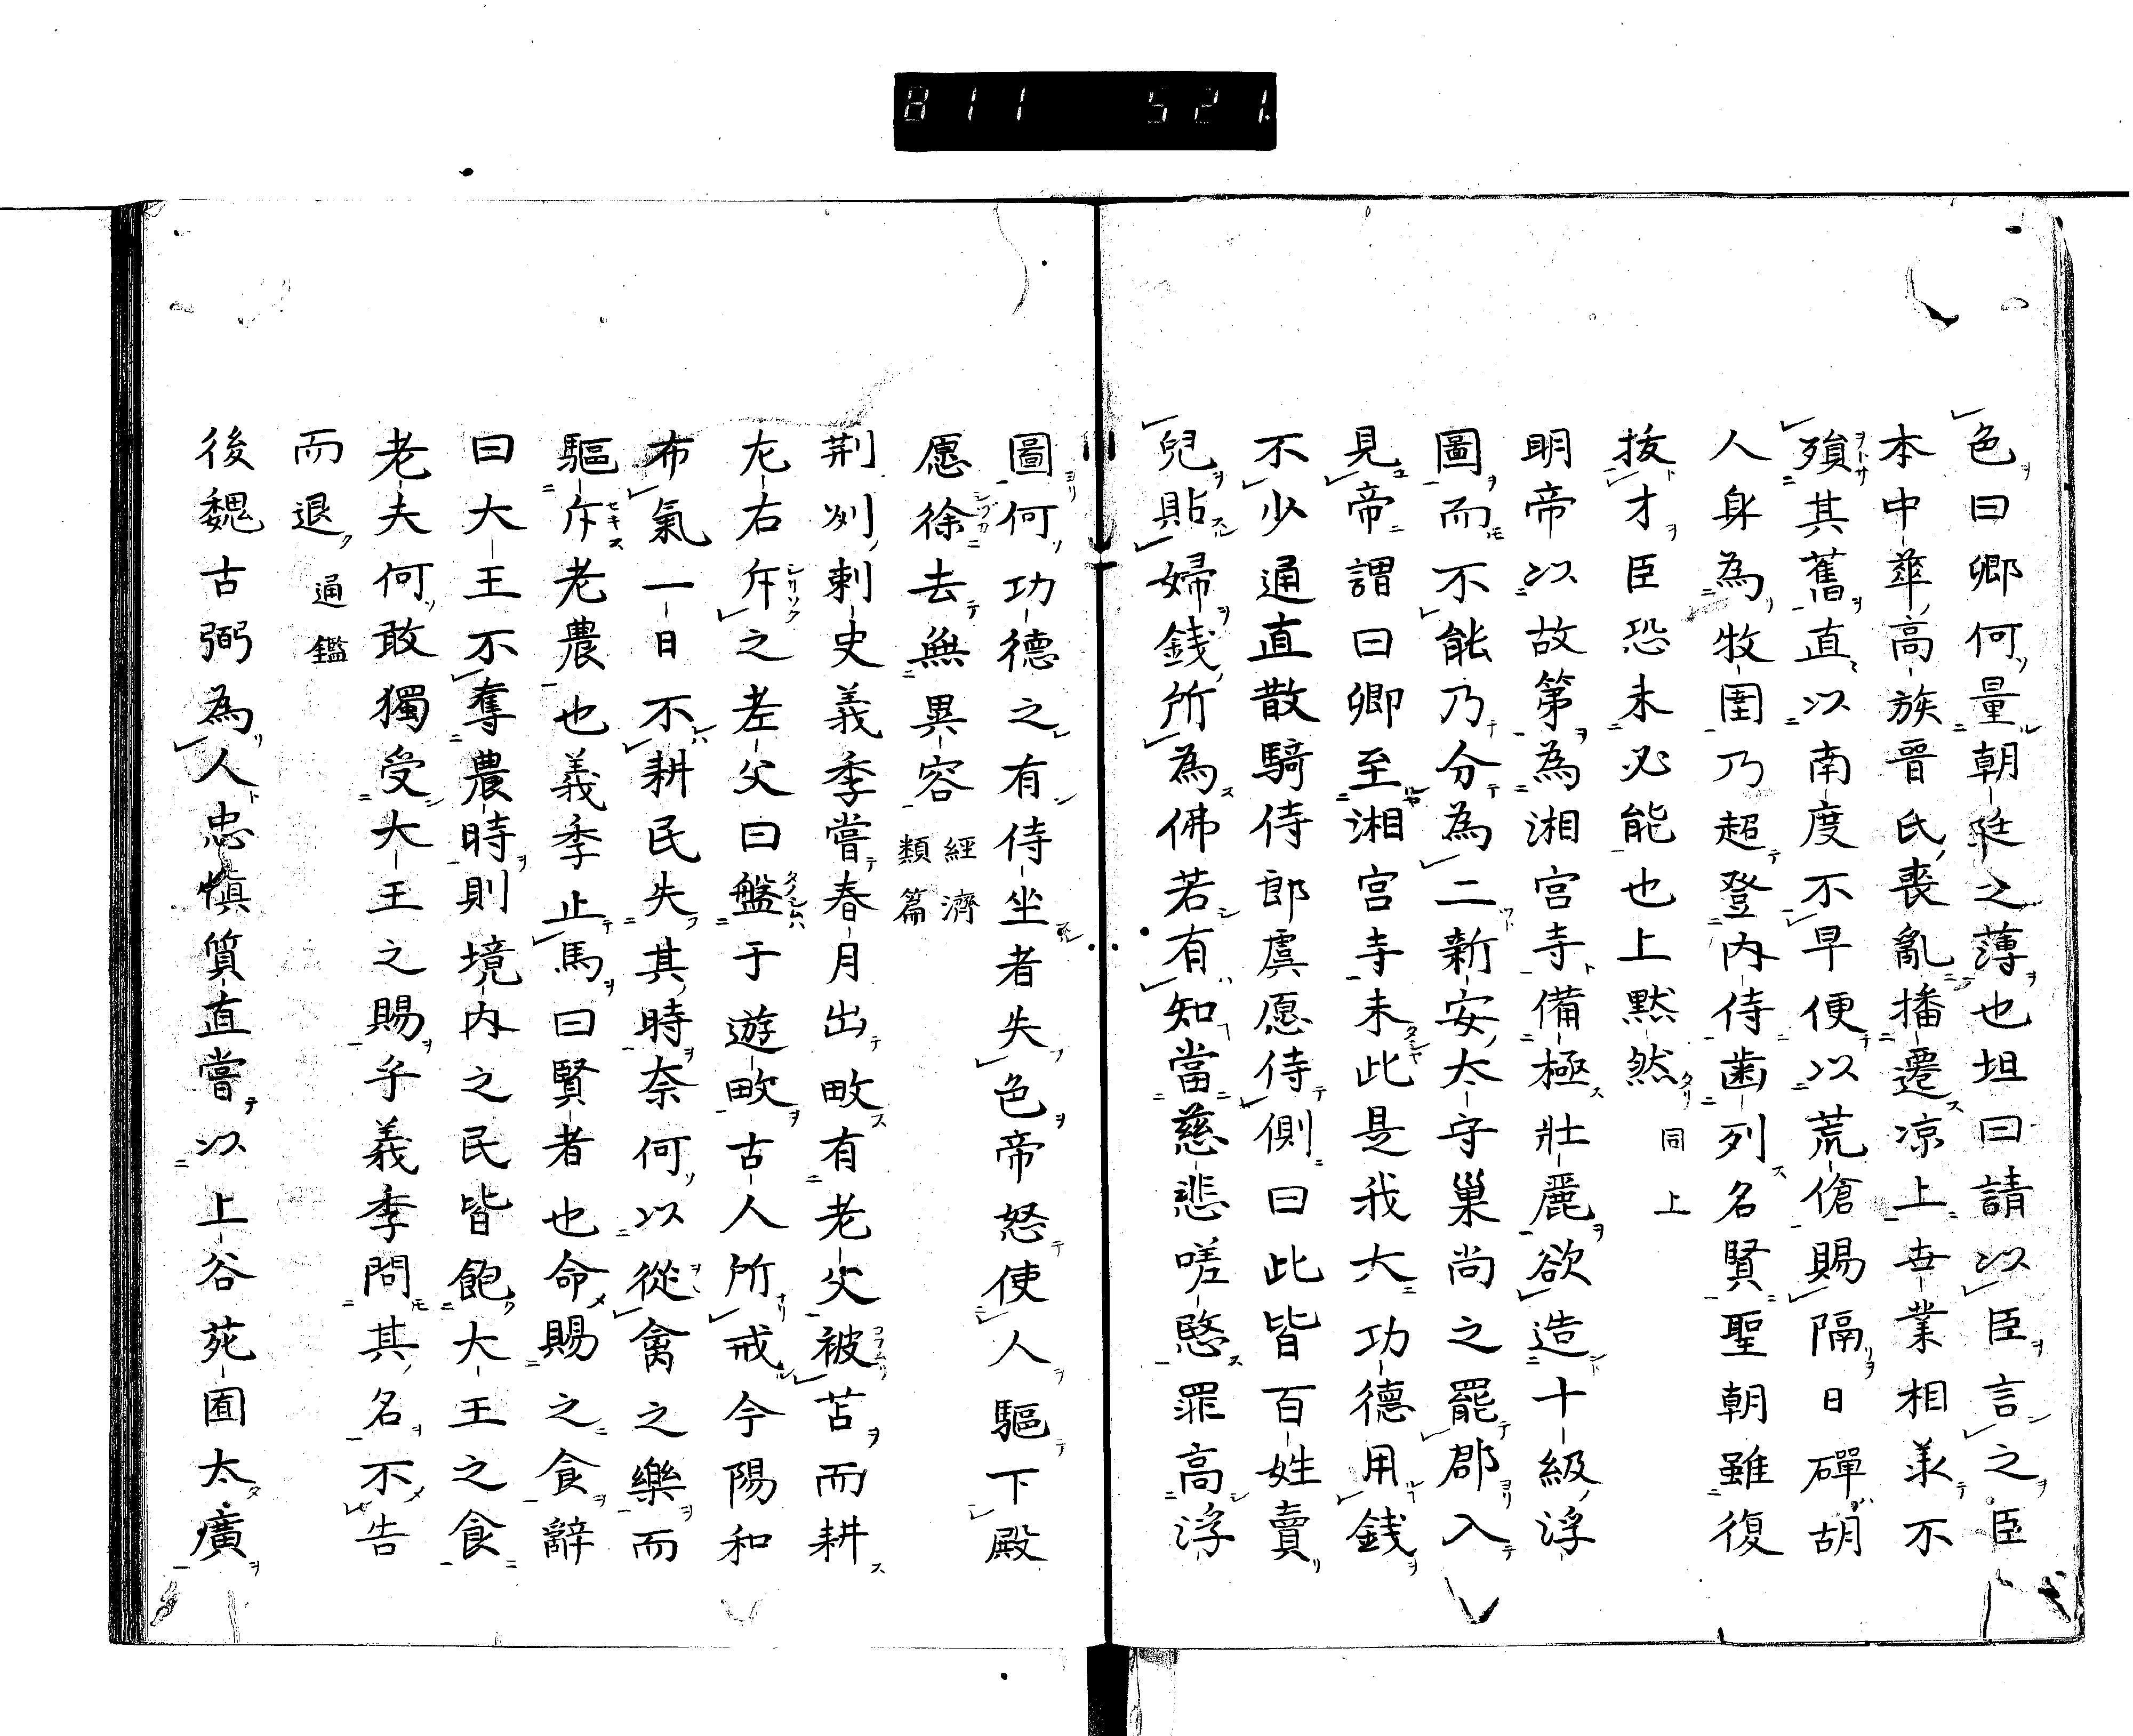 811 521
色曰卿何量朝廷之薄也坦曰請以臣言之臣
本中華高族晉氏喪亂播遷凉上世業相承不
殞其舊直以南度不早便以荒傖賜隔日磾胡
人身為牧圉乃超登内侍齒列名賢聖朝雖復
拔才臣恐未必能也上默然 同上
明帝以故第為湘宮寺備極壯麗欲造十級浮
圖而不能乃分為二新安太守巢尚之罷郡入
見帝謂曰卿至湘宮寺未此是我大功德用錢
不少通直散騎侍郎虞愿侍側曰此皆百姓賣
兒貼婦錢所為佛若有知當慈悲嗟愍罪高浮
圖何功德之有侍坐者失色帝怒使人驅下殿
愿徐去無異容 經濟類篇
荆州刺史義季嘗春月出畋有老父被苫而耕
左右斥之老父曰盤于遊畋古人所戒今陽和
布氣一日不耕民失其時奈何以從禽之樂而
驅斥老農也義季止馬曰賢者也命賜之食辭
曰大王不奪農時則境内之民皆飽大王之食
老夫何敢獨受大王之賜乎義季問其名不告
而退 通鑑
後魏古弼為人忠慎質直嘗以上谷苑囿太廣